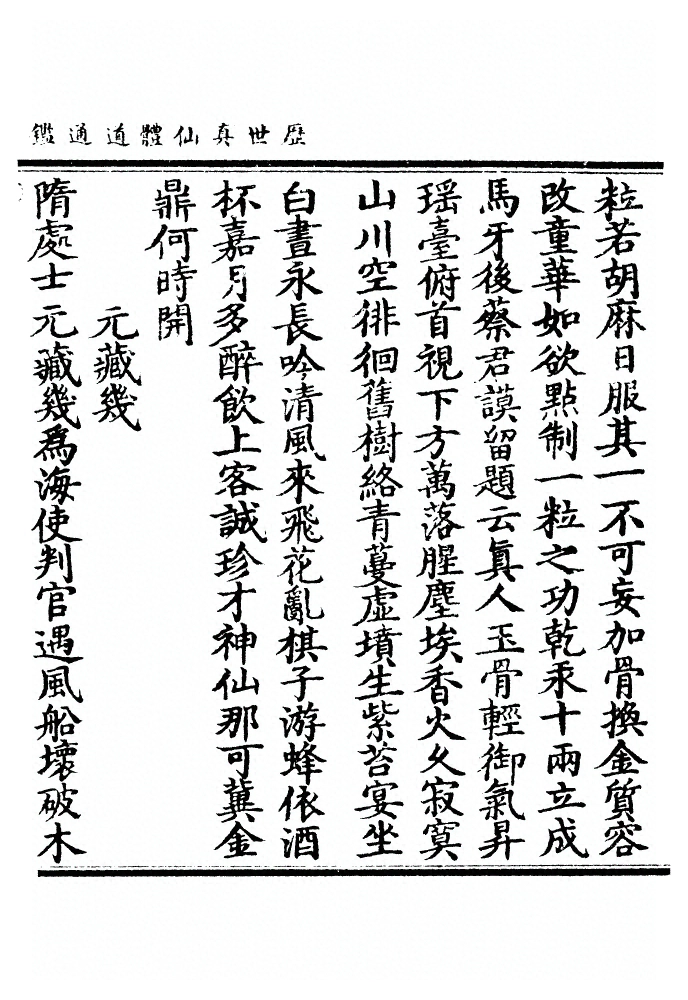 歷世真仙體道通鑑
粒若胡麻日服其一不可妄加骨換金質容
改童華如欲點制一粒之功乾汞十兩立成
馬牙後蔡君謨留題云真人玉骨輕御氣昇
瑶臺俯首視下方萬落腥塵埃香火久寂寞
山川空徘徊舊樹絡青蔓虛墳生紫苔宴坐
白晝永長吟清風來飛花亂棋子游蜂依酒
杯嘉月多醉飲上客誠珍才神仙那可冀金
鼎何時開
元藏幾
隋處士元藏幾為海使判官遇風船壞破木